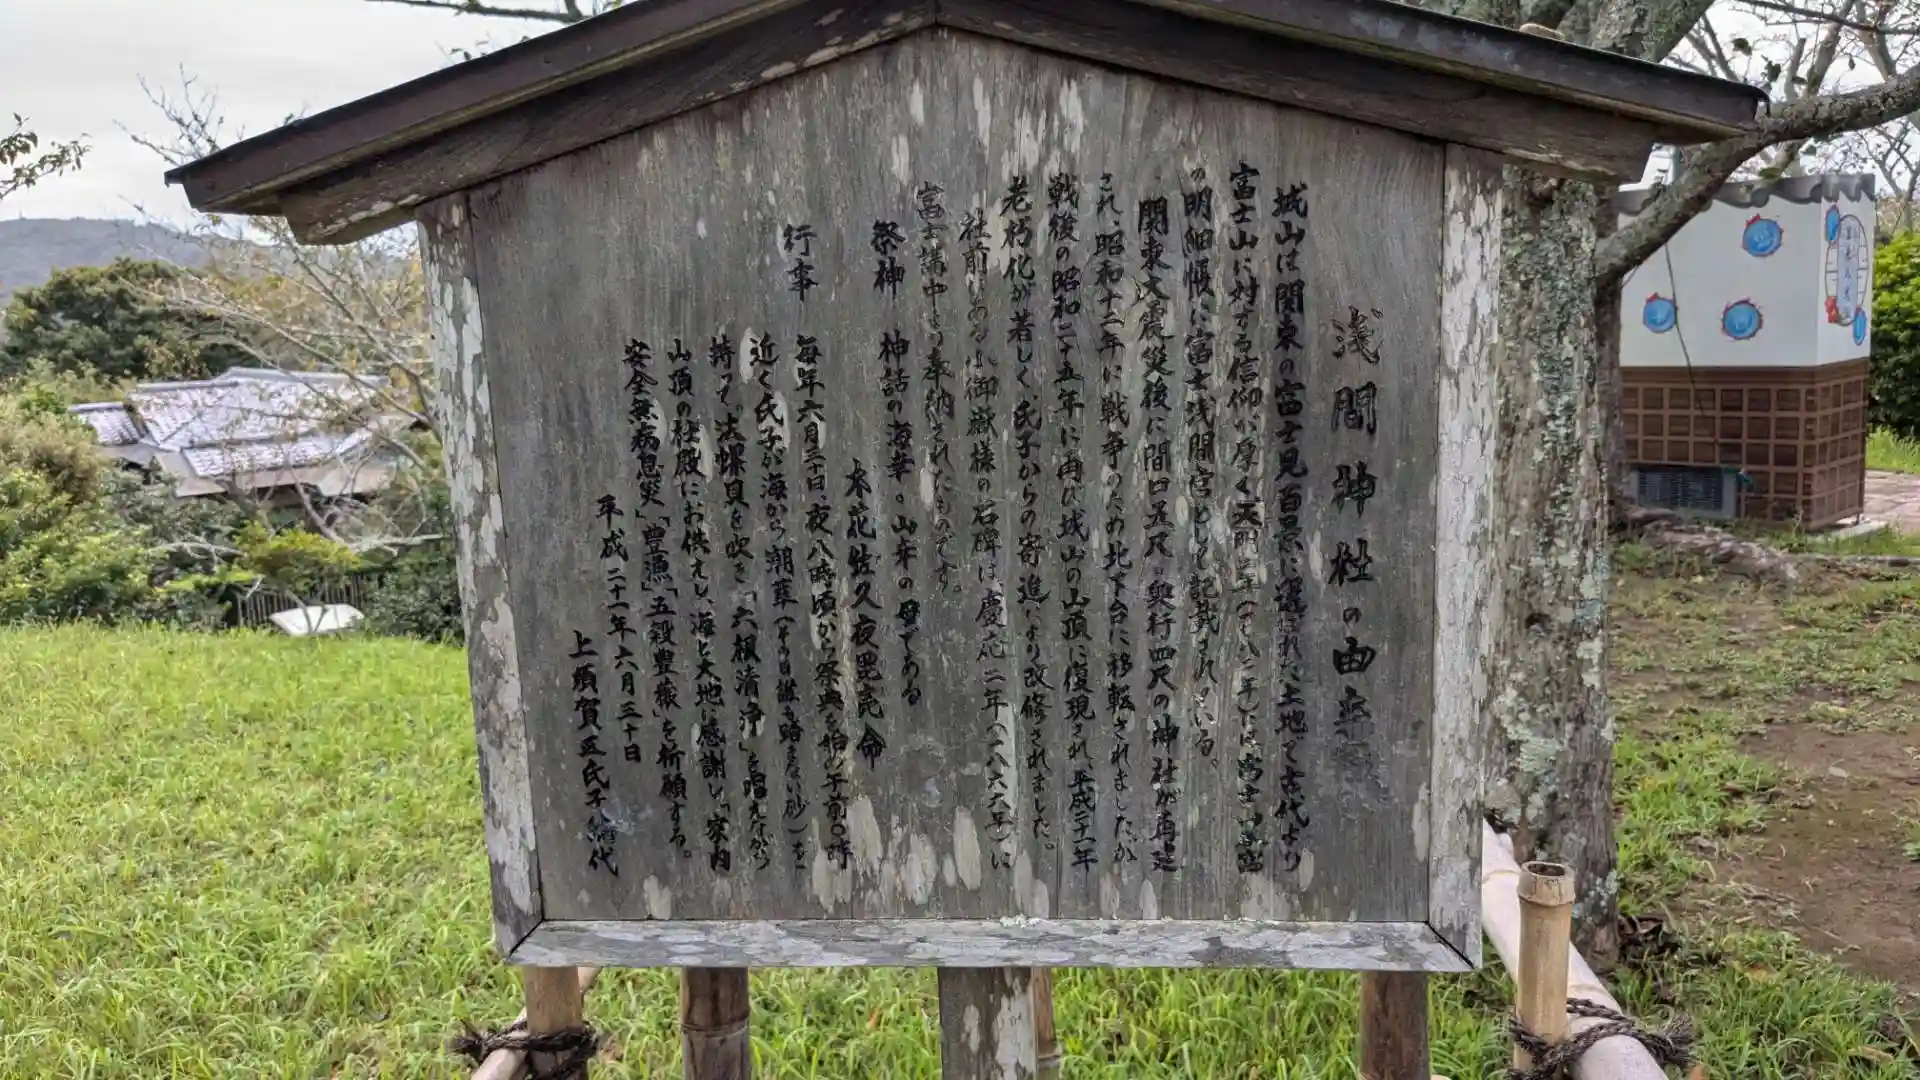 浅間神社の由来
城山は関東の富士見百景に選ばれた土地で古代より
富士山に対する信仰が厚く天明二年(一七八二年)には富士山宮
の明細帳に富士浅間宮として記載されている。
関東大震災後に間口五尺・奥行四尺の神社が再建
され、昭和十二年に戦争のため北下台に移転されましたが
戦後の昭和二十五年に再び城山の山頂に復現され、平成二十一年
老朽化が著しく氏子からの寄進により改修されました。
社前にある小御嶽様の石碑は慶応二年(一八六六年)に
富士講中より奉納されたものです。
祭神 神話の海幸・山幸の母である
木花佐久夜毘売命
行事 毎年六月三十日、夜八時頃から祭典を始め午前〇時
近く氏子が海から潮華(その日誰も踏まない砂)を
持って、法螺貝を吹き「六根清浄」を唱えながら
山頂の社殿にお供えし、海と大地に感謝し「家内
安全無病息災」「豊漁」「五穀豊穣」を祈願する。
平成二十一年六月三十日
上須賀区氏子総代